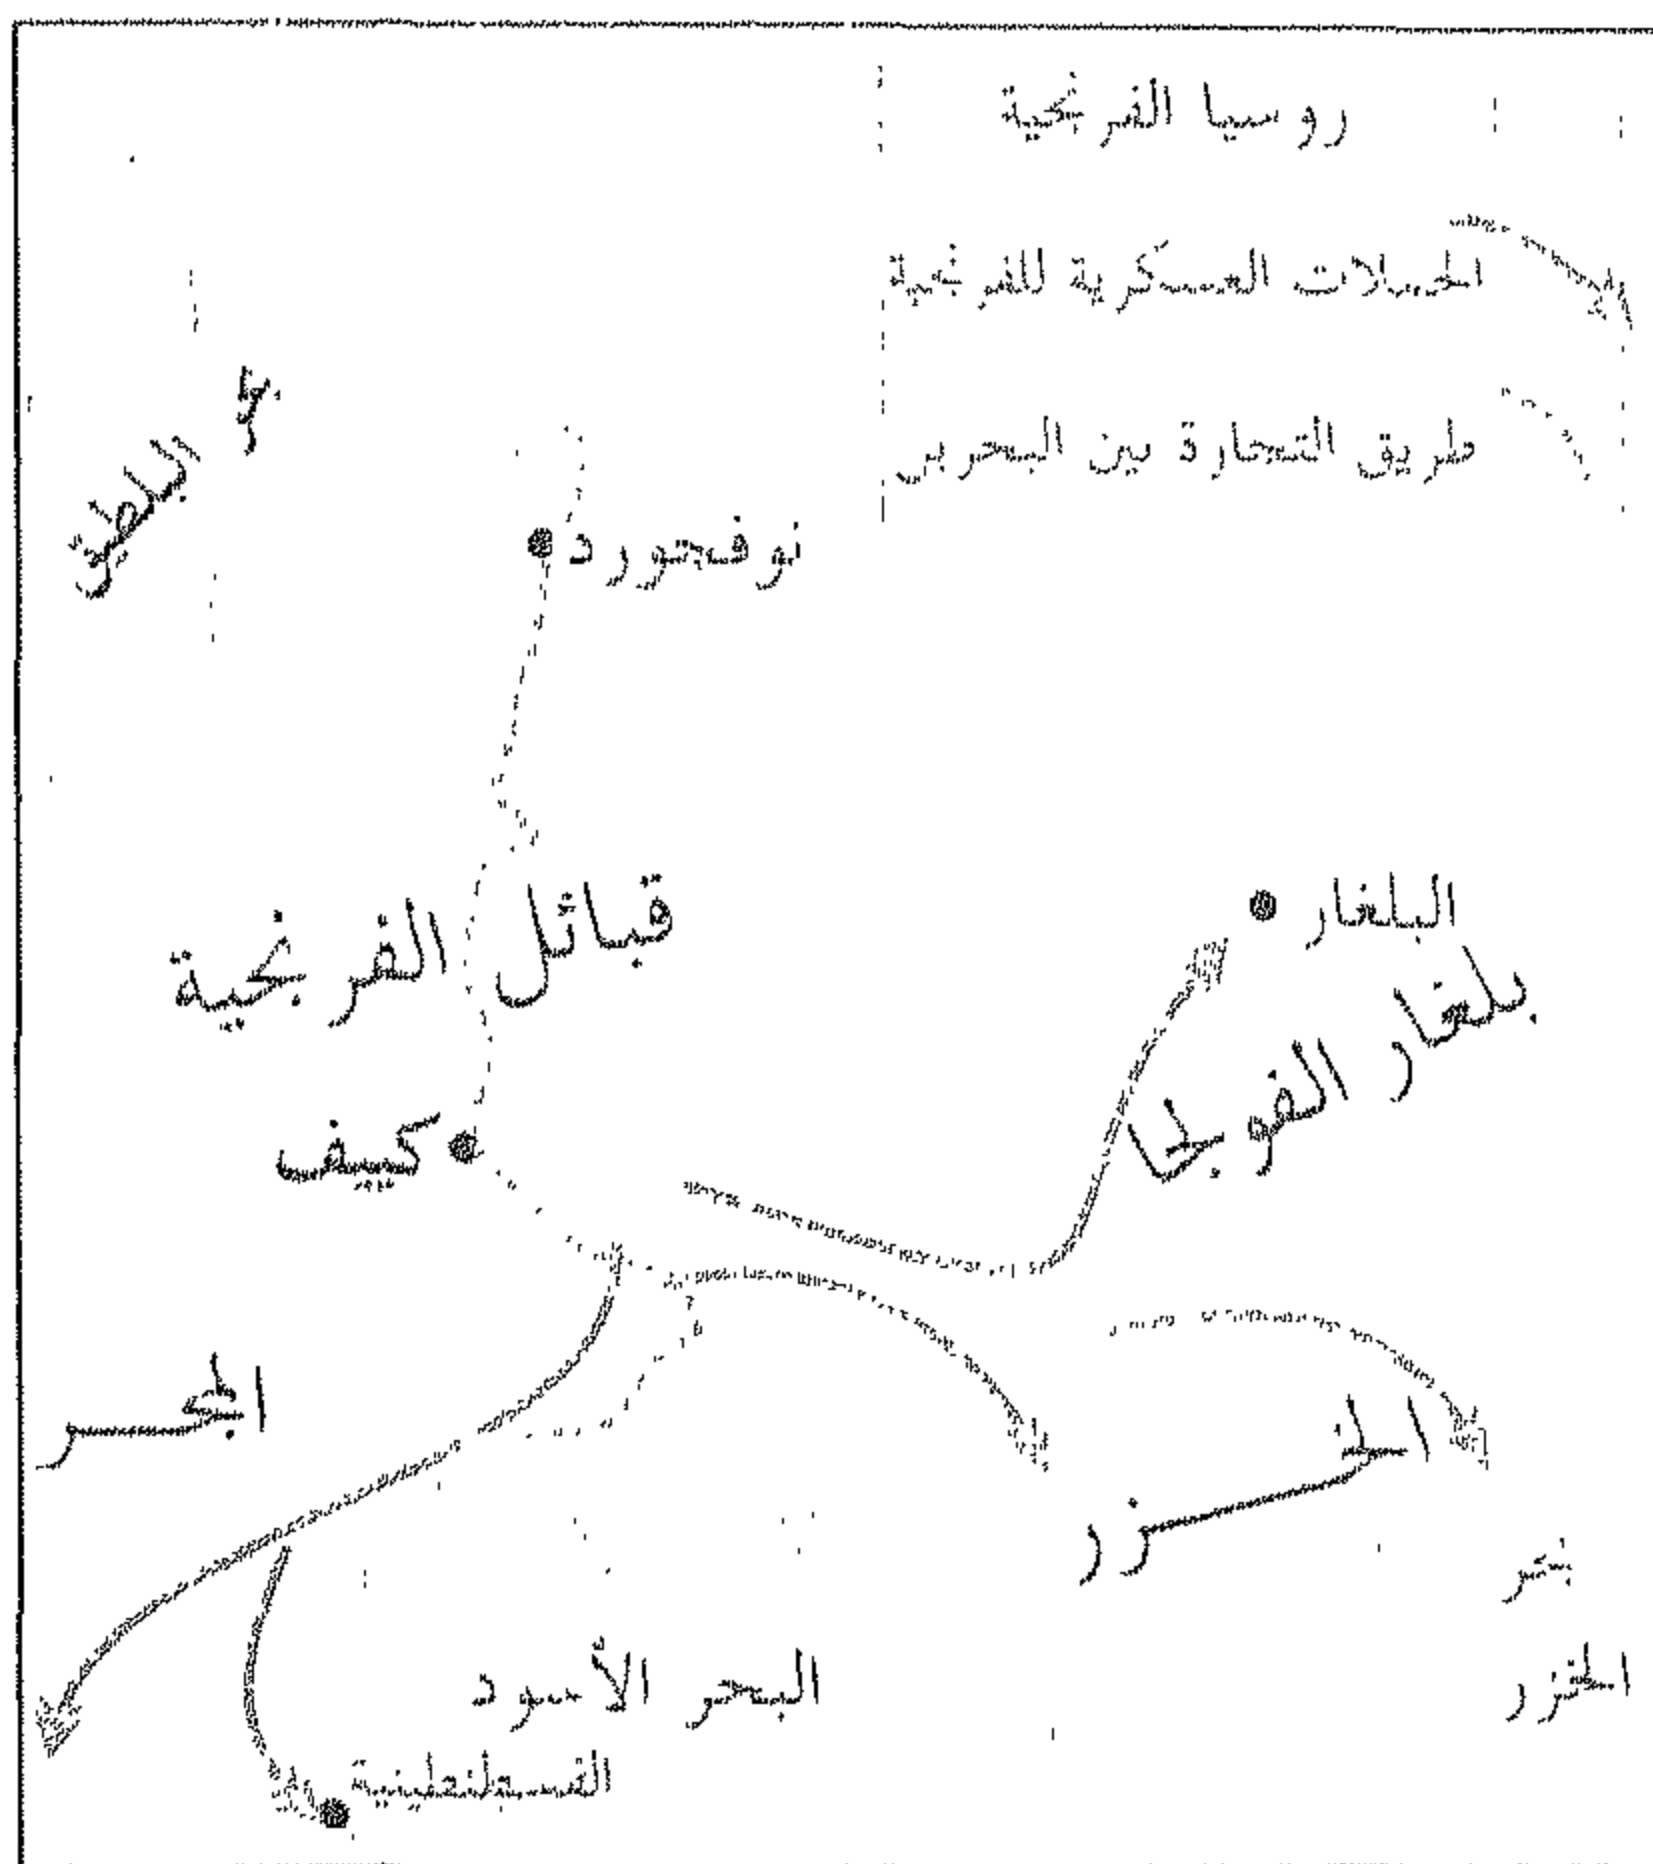 روسيا الفرنجية
الحملات العسكرية للفرنجية
طريق التجارة بين البحرين
بحر البلطيق
نوفجورد
قبائل الفرنجية
البلغار
بلغار الفولجا
كييف
المجر
الخزر
بحر
الخزر
البحر الأسود
القسطنطينية